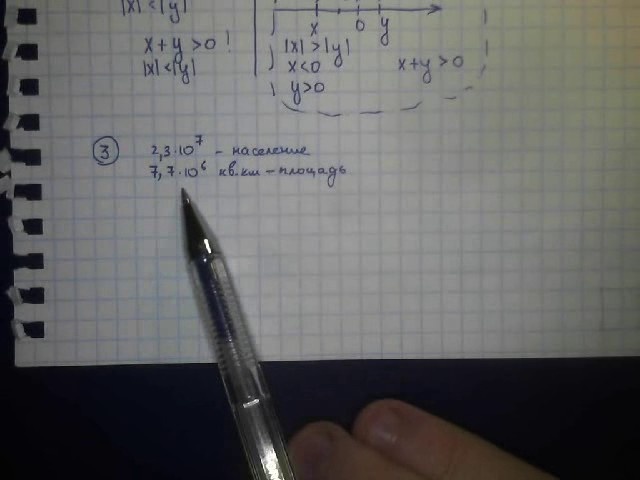 |x| < |y|
x + y > 0 !
|x| < |y|
x 0 y
|x| > |y|
x < 0
y > 0
x+y > 0
3
2,3·10⁷ - население
7,7·10⁶ кв.км - площадь